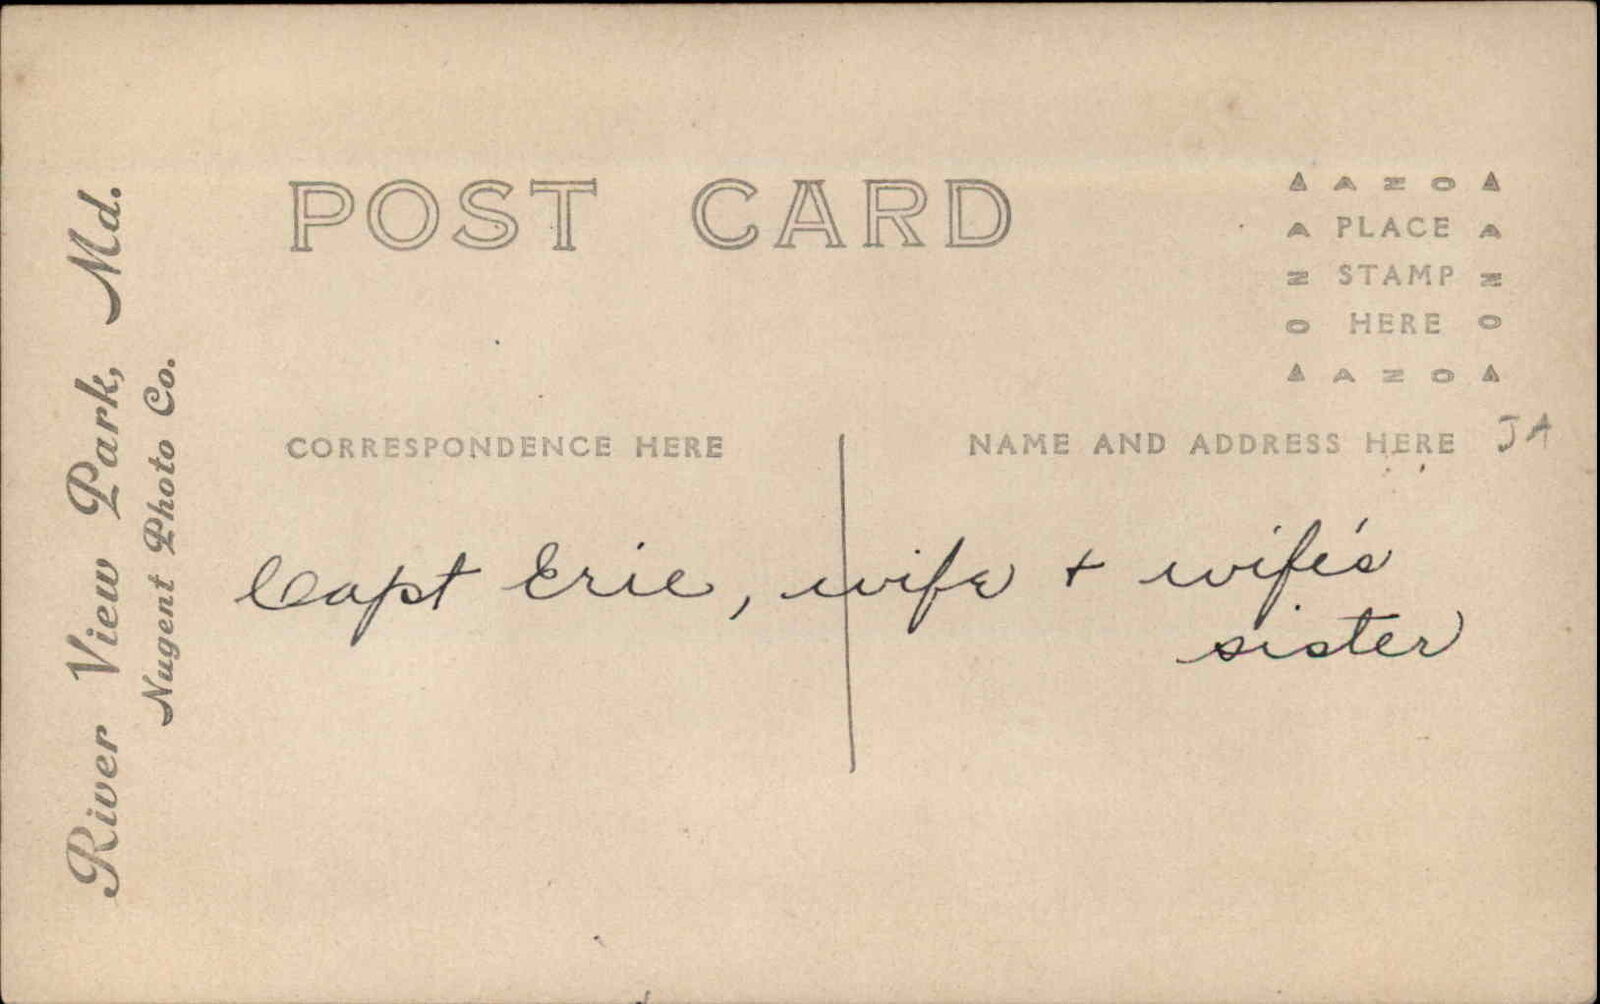 River View Park, Md.
Nugent Photo Co.
POST CARD
▲ A Z O ▲
A PLACE A
Z STAMP Z
O HERE O
▲ A Z O ▲
CORRESPONDENCE HERE
NAME AND ADDRESS HERE
JA
Capt Eric, wife + wife's
sister